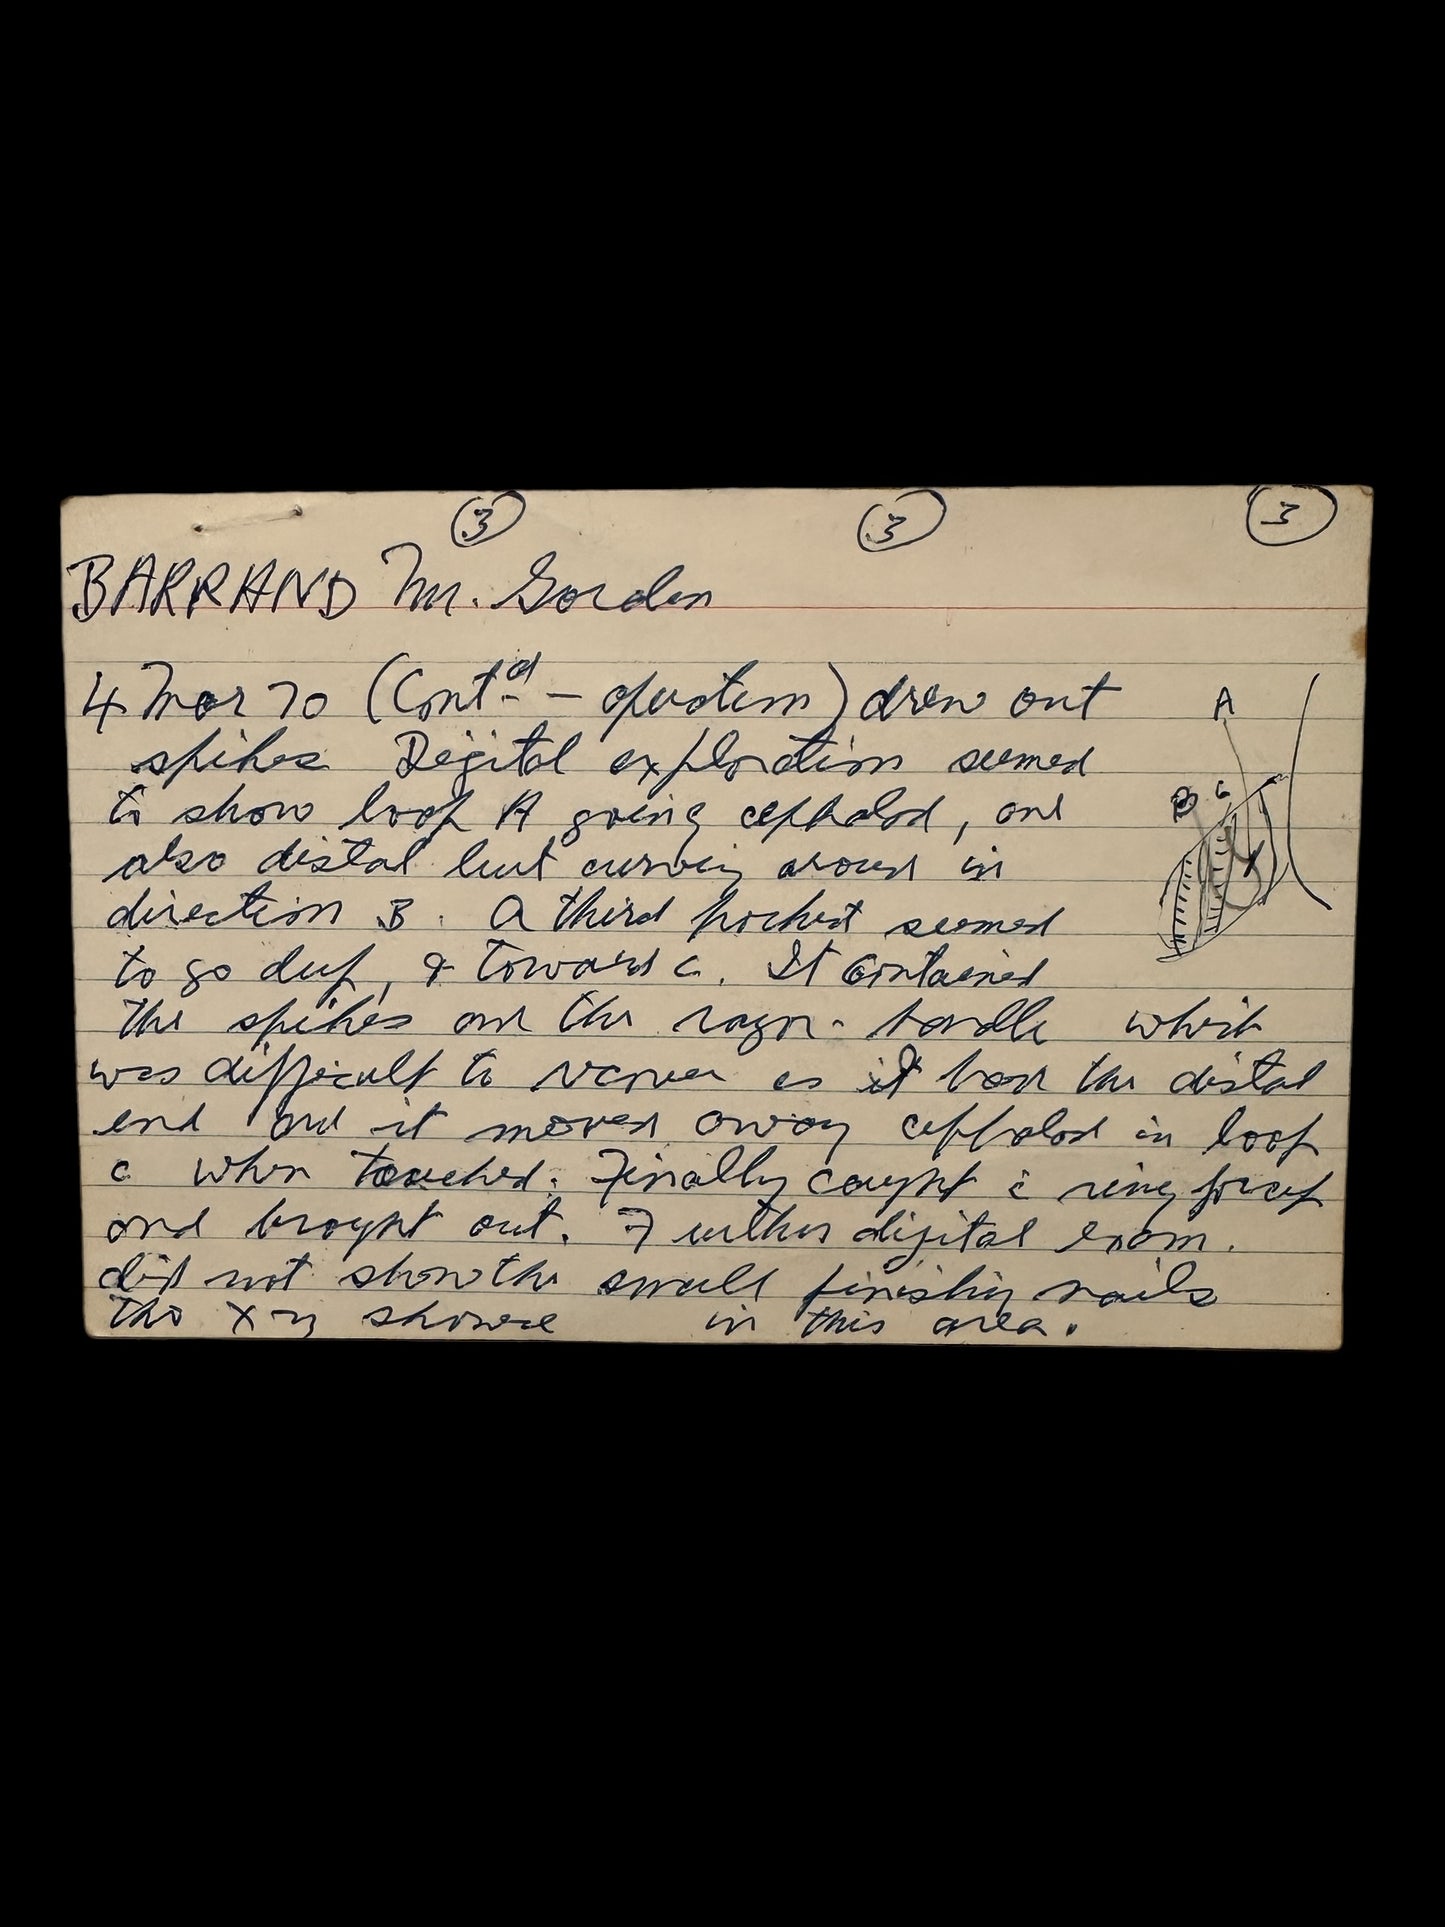 3 3 3
BARRAND Mr. Gordon
4 Mar 70 (Cont'd - operation) drew out
spikes Digital exploration seemed
to show loop A going cephalad, and
also distal but curving around in
direction B. A third pocket seemed
to go deep, & toward C. It contained
the spikes and the razor-handle which
was difficult to recover as it had the distal
end and it moved away cephalad in loop
C when touched. Finally caught c̄ ring forcep
and brought out. Further digital exam.
did not show the small finishing nails
the x-ray showed in this area.
A
B C
X